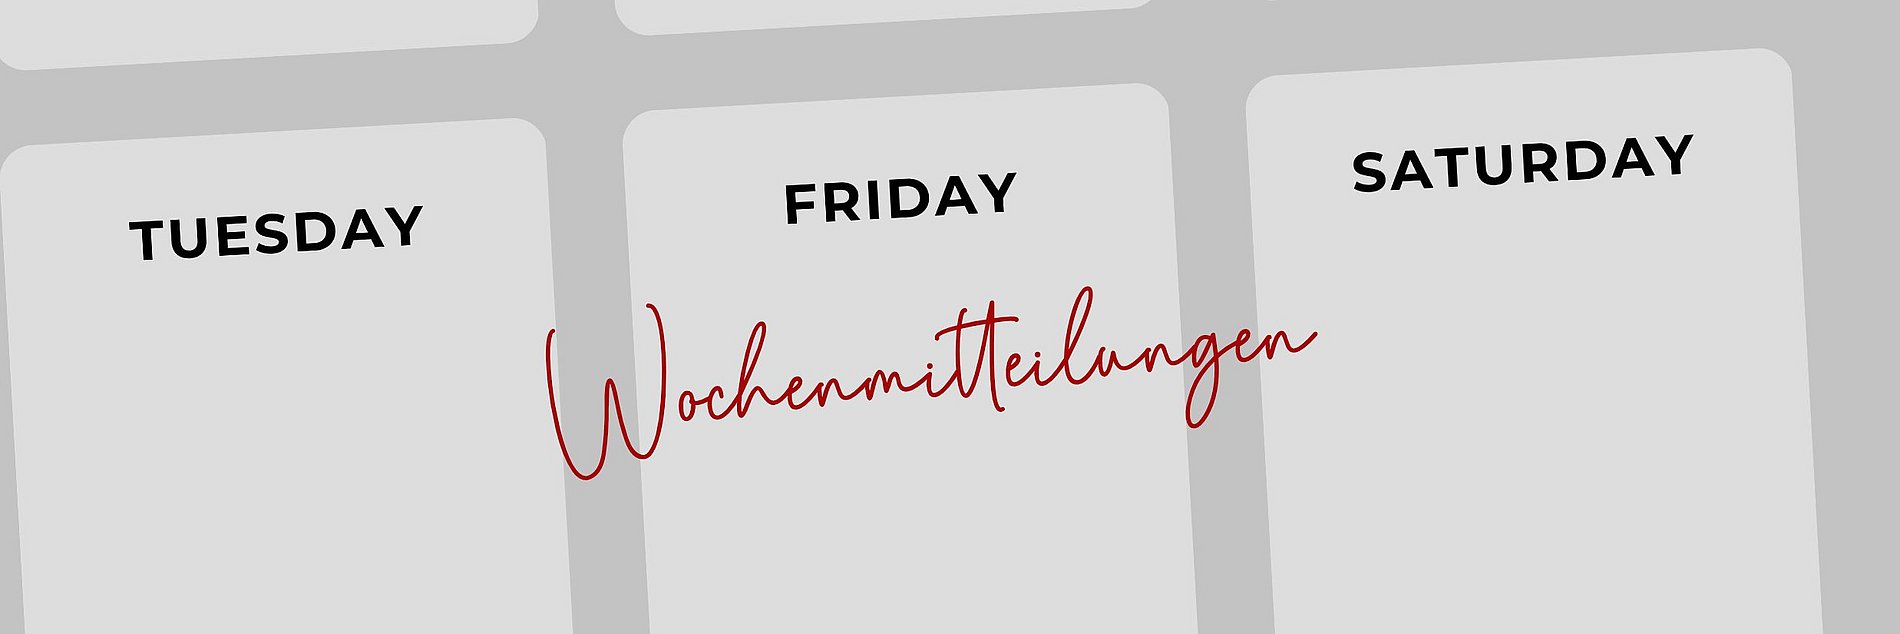 TUESDAY
FRIDAY
SATURDAY
Wochenmitteilungen